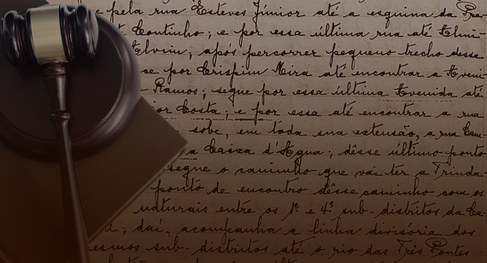 e pela rua Esteves Júnior até a esquina da
Coutinho; e por essa última rua até
após percorrer pequeno trecho desse
se por Crispim Mira até encontrar a
Ramos; segue por essa última Avenida até
Costa; e por essa até encontrar a rua
sobe, em toda sua extensão, a rua
a Caixa d'Agua; dêsse último ponto
segue o caminho que vai ter a
ponto de encontro dêsse caminho com os
naturais entre os 1º e 4º sub-distritos da
daí, acompanha a linha divisoria dos
mesmos sub-distritos até o rio das Três Pontes